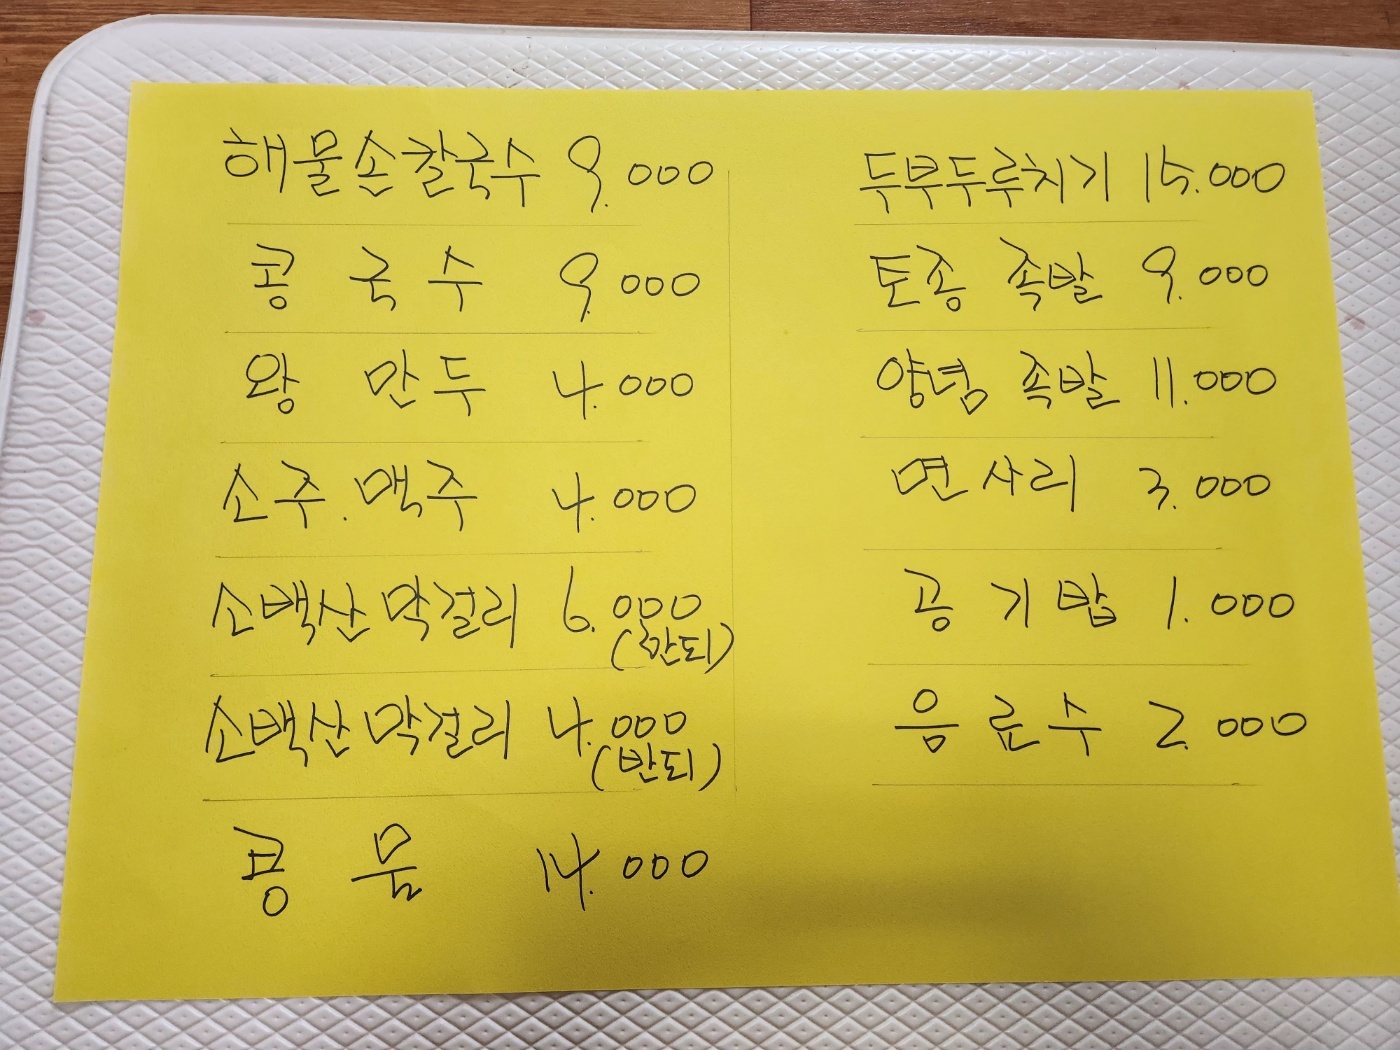 해물손칼국수 9.000
콩 국 수 9.000
왕 만두 4.000
소주.맥주 4.000
소백산막걸리 6.000
(한되)
소백산막걸리 4.000
(반되)
콩 물 14.000
두부두루치기 15.000
토종 족발 9.000
양념 족발 11.000
면사리 3.000
공 기 밥 1.000
음 료 수 2.000